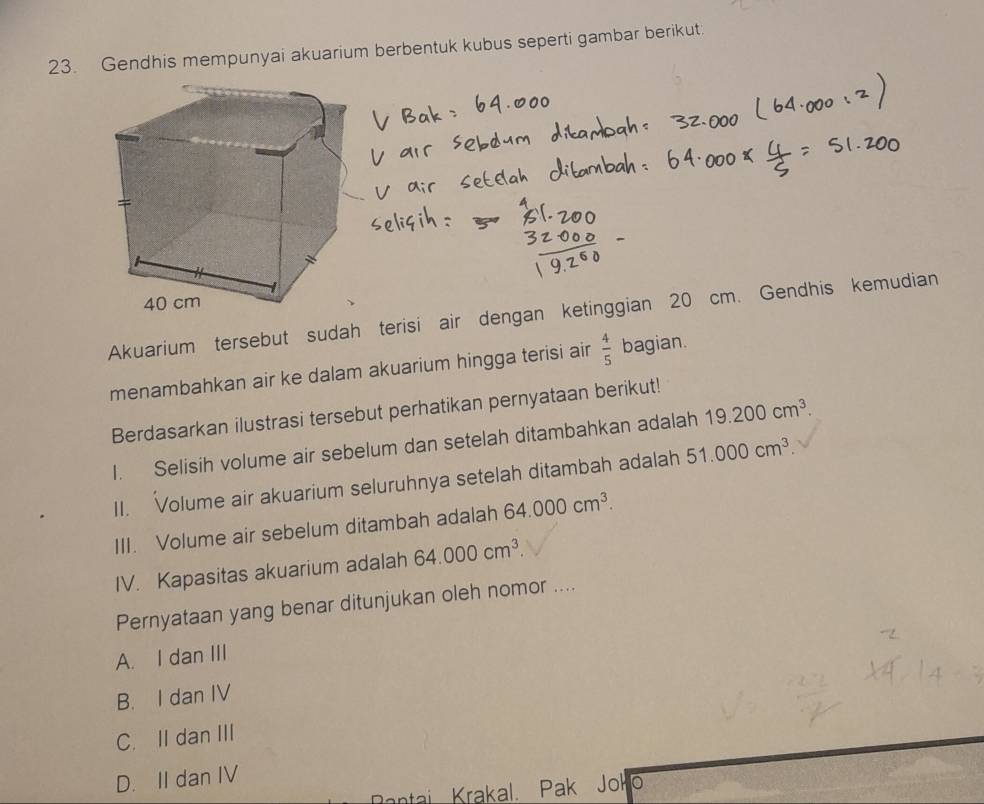 23. Gendhis mempunyai akuarium berbentuk kubus seperti gambar berikut:
V Bak = 64.000
V air sebelum ditambah = 32.000 (64.000 : 2)
V air setelah ditambah = 64.000 x 4/5 = 51.200
selisih = 51.200
32.000 -
19.200
40 cm
Akuarium tersebut sudah terisi air dengan ketinggian 20 cm. Gendhis kemudian
menambahkan air ke dalam akuarium hingga terisi air 4/5 bagian.
Berdasarkan ilustrasi tersebut perhatikan pernyataan berikut!
I. Selisih volume air sebelum dan setelah ditambahkan adalah 19.200 cm³.
II. Volume air akuarium seluruhnya setelah ditambah adalah 51.000 cm³.
III. Volume air sebelum ditambah adalah 64.000 cm³.
IV. Kapasitas akuarium adalah 64.000 cm³.
Pernyataan yang benar ditunjukan oleh nomor ....
A. I dan III
B. I dan IV
C. II dan III
D. II dan IV
Pantai Krakal. Pak Joko